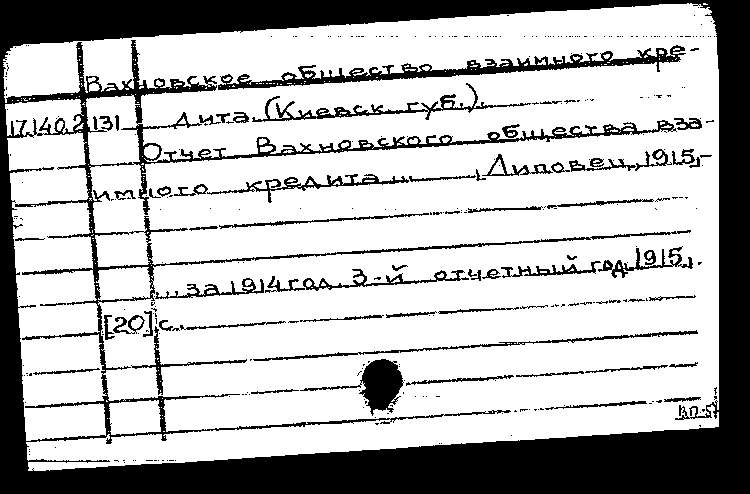 Вахновское общество взаимного кре-
17.140.2.131 дита (Киевск. губ.).
Отчет Вахновского общества вза-
имного кредита... Липовец, 1915,-
...за 1914 год. 3-й отчетный год. 1915,.
[20] с.
ВП-57